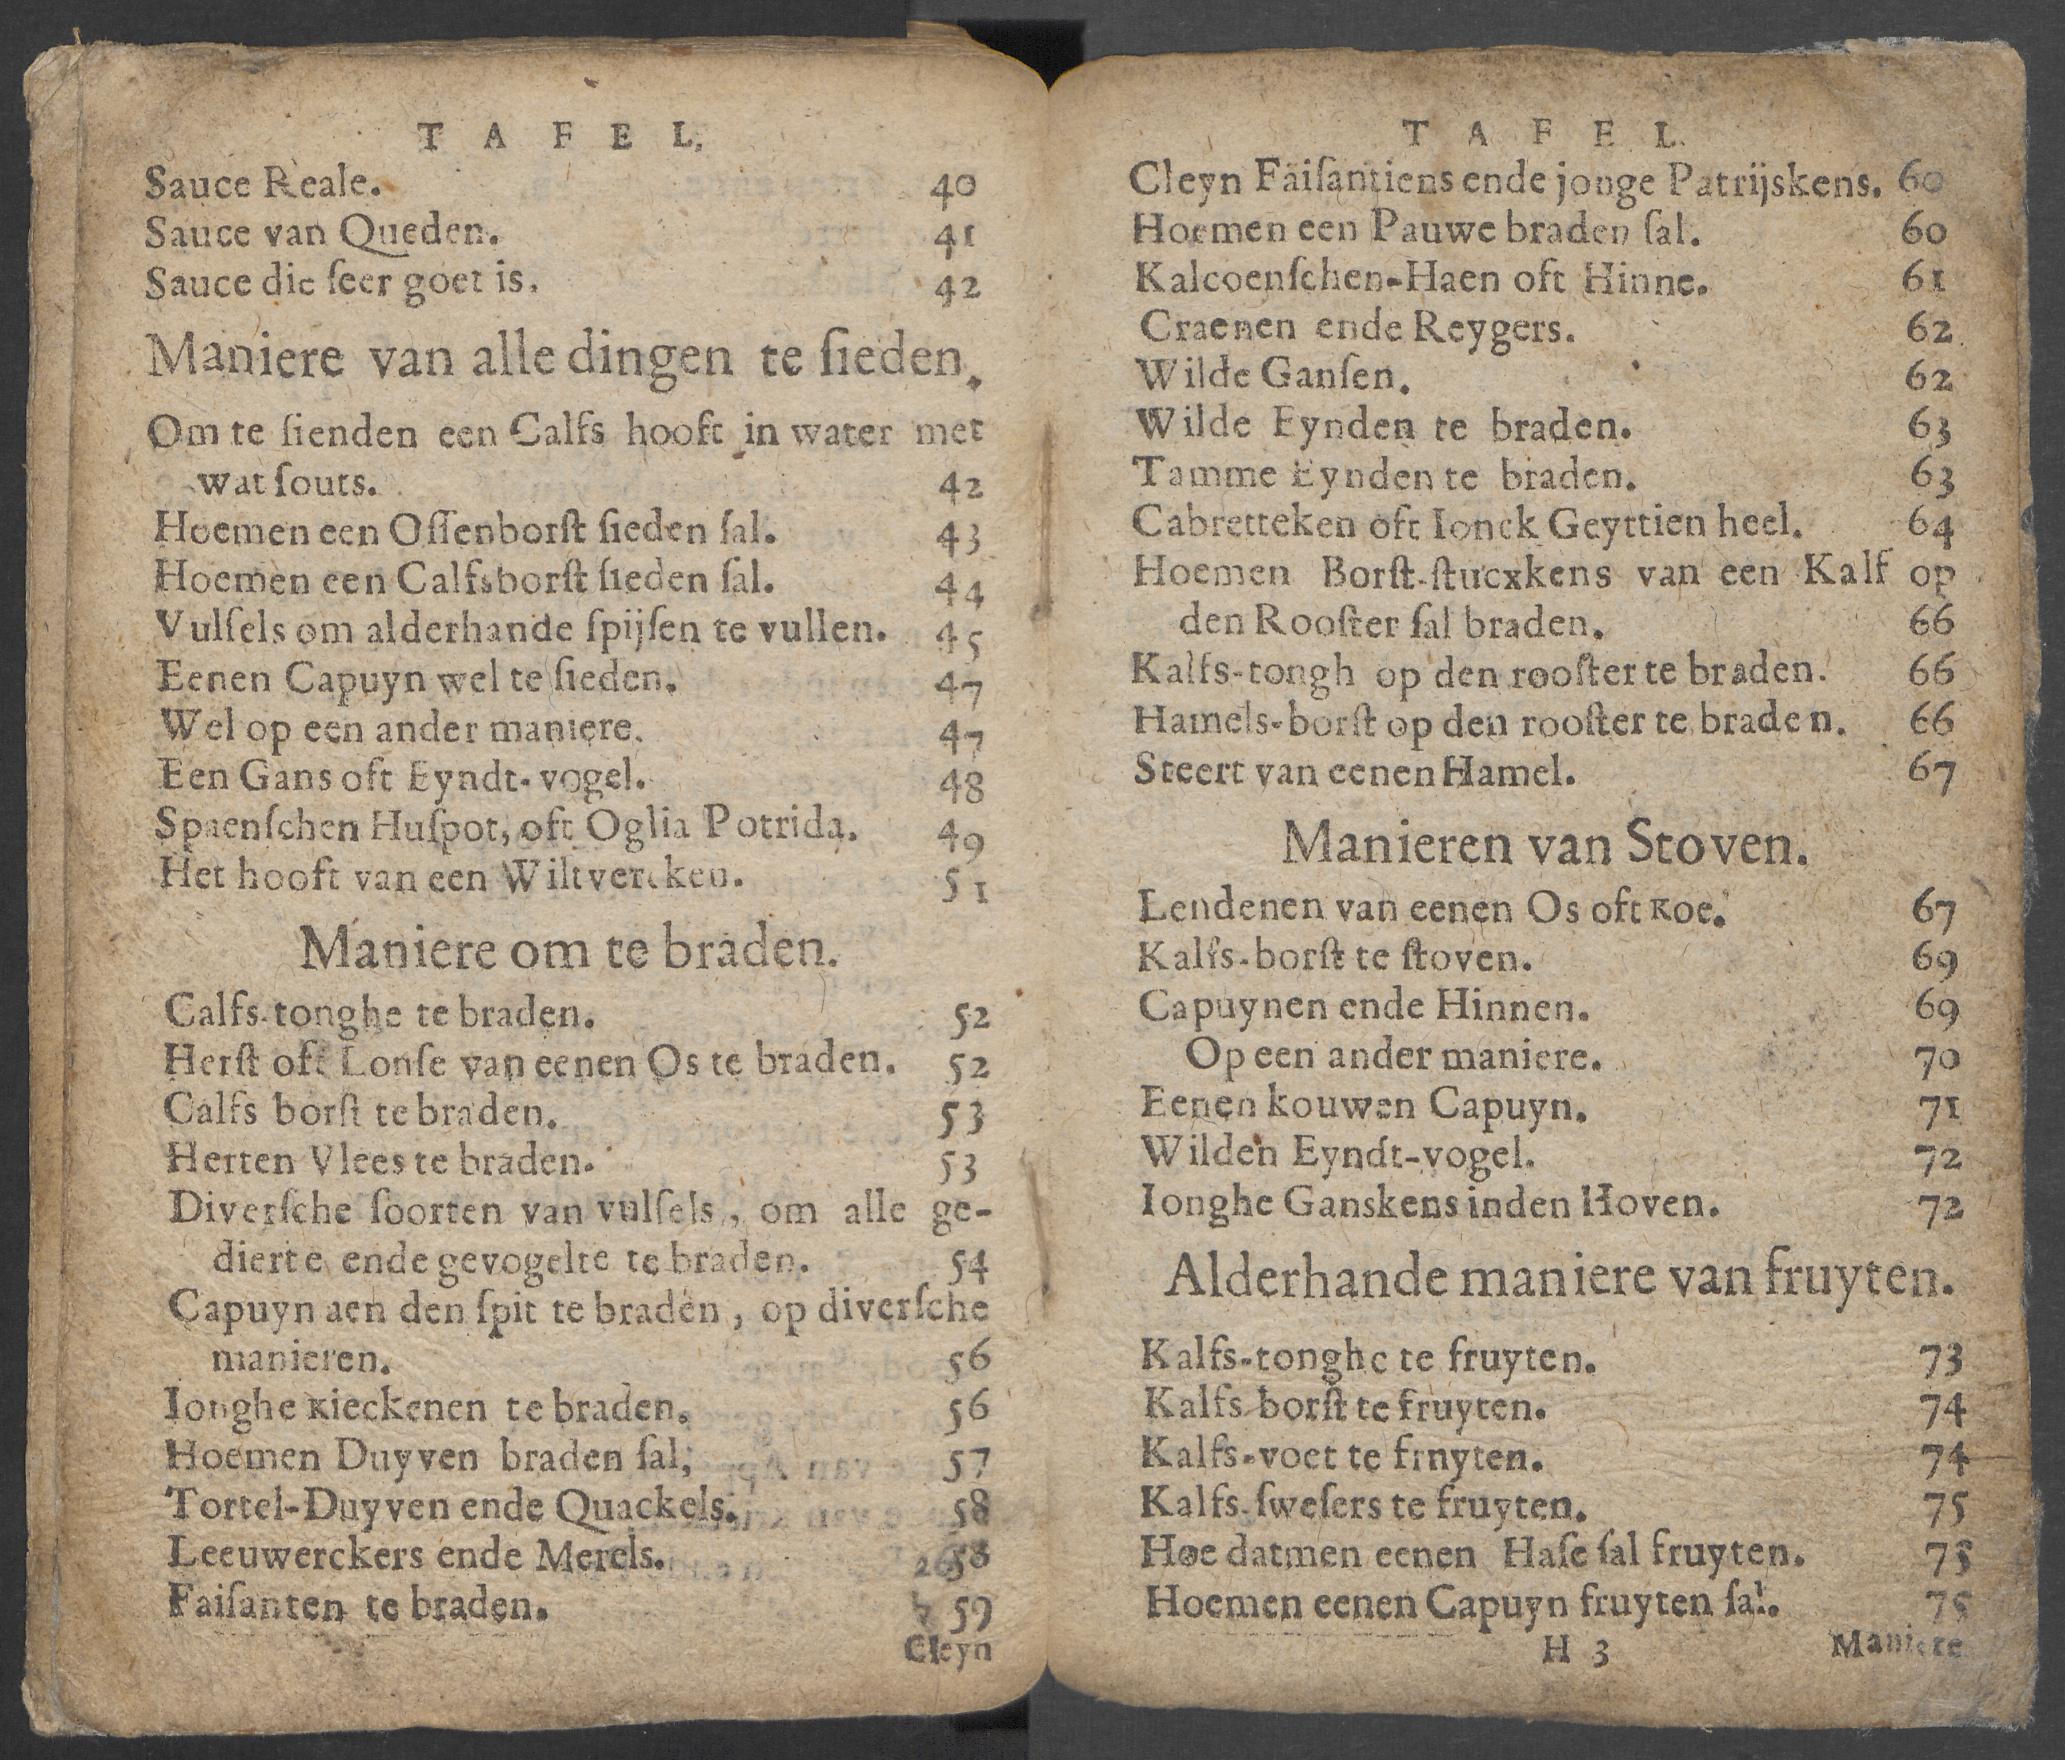 TAFEL.
Sauce Reale. 40
Sauce van Queden. 41
Sauce die ſeer goet is. 42
Maniere van alle dingen te ſieden.
Om te ſienden een Calfs hooft in water met
wat ſouts. 42
Hoemen een Oſſenborſt ſieden ſal. 43
Hoemen een Calfsborſt ſieden ſal. 44
Vulſels om alderhande ſpijſen te vullen. 45
Eenen Capuyn wel te ſieden. 47
Wel op een ander maniere. 47
Een Gans oft Eyndt-vogel. 48
Spaenſchen Huſpot, oft Oglia Potrida. 49
Het hooft van een Wiltvercken. 51
Maniere om te braden.
Calfs-tonghe te braden. 52
Herſt oft Lonſe van eenen Os te braden. 52
Calfs borſt te braden. 53
Herten Vlees te braden. 53
Diverſche ſoorten van vulſels, om alle ge-
dierte ende gevogelte te braden. 54
Capuyn aen den ſpit te braden, op diverſche
manieren. 56
Ionghe Kieckenen te braden. 56
Hoemen Duyven braden ſal, 57
Tortel-Duyven ende Quackels. 58
Leeuwerckers ende Merels. 58
Faiſanten te braden. 59
Cleyn
TAFEL.
Cleyn Faiſantiens ende jonge Patrijskens. 60
Hoemen een Pauwe braden ſal. 60
Kalcoenſchen-Haen oft Hinne. 61
Craenen ende Reygers. 62
Wilde Ganſen. 62
Wilde Eynden te braden. 63
Tamme Eynden te braden. 63
Cabretteken oft Ionck Geyttien heel. 64
Hoemen Borſt-ſtucxkens van een Kalf op
den Rooſter ſal braden. 66
Kalfs-tongh op den rooſter te braden. 66
Hamels-borſt op den rooſter te braden. 66
Steert van eenen Hamel. 67
Manieren van Stoven.
Lendenen van eenen Os oft Koe. 67
Kalfs-borſt te ſtoven. 69
Capuynen ende Hinnen. 69
Op een ander maniere. 70
Eenen kouwen Capuyn. 71
Wilden Eyndt-vogel. 72
Ionghe Ganskens inden Hoven. 72
Alderhande maniere van fruyten.
Kalfs-tonghe te fruyten. 73
Kalfs-borſt te fruyten. 74
Kalfs-voet te frnyten. 74
Kalfs-ſweſers te fruyten. 75
Hoe datmen eenen Haſe ſal fruyten. 75
Hoemen eenen Capuyn fruyten ſal. 75
H 3 Maniere